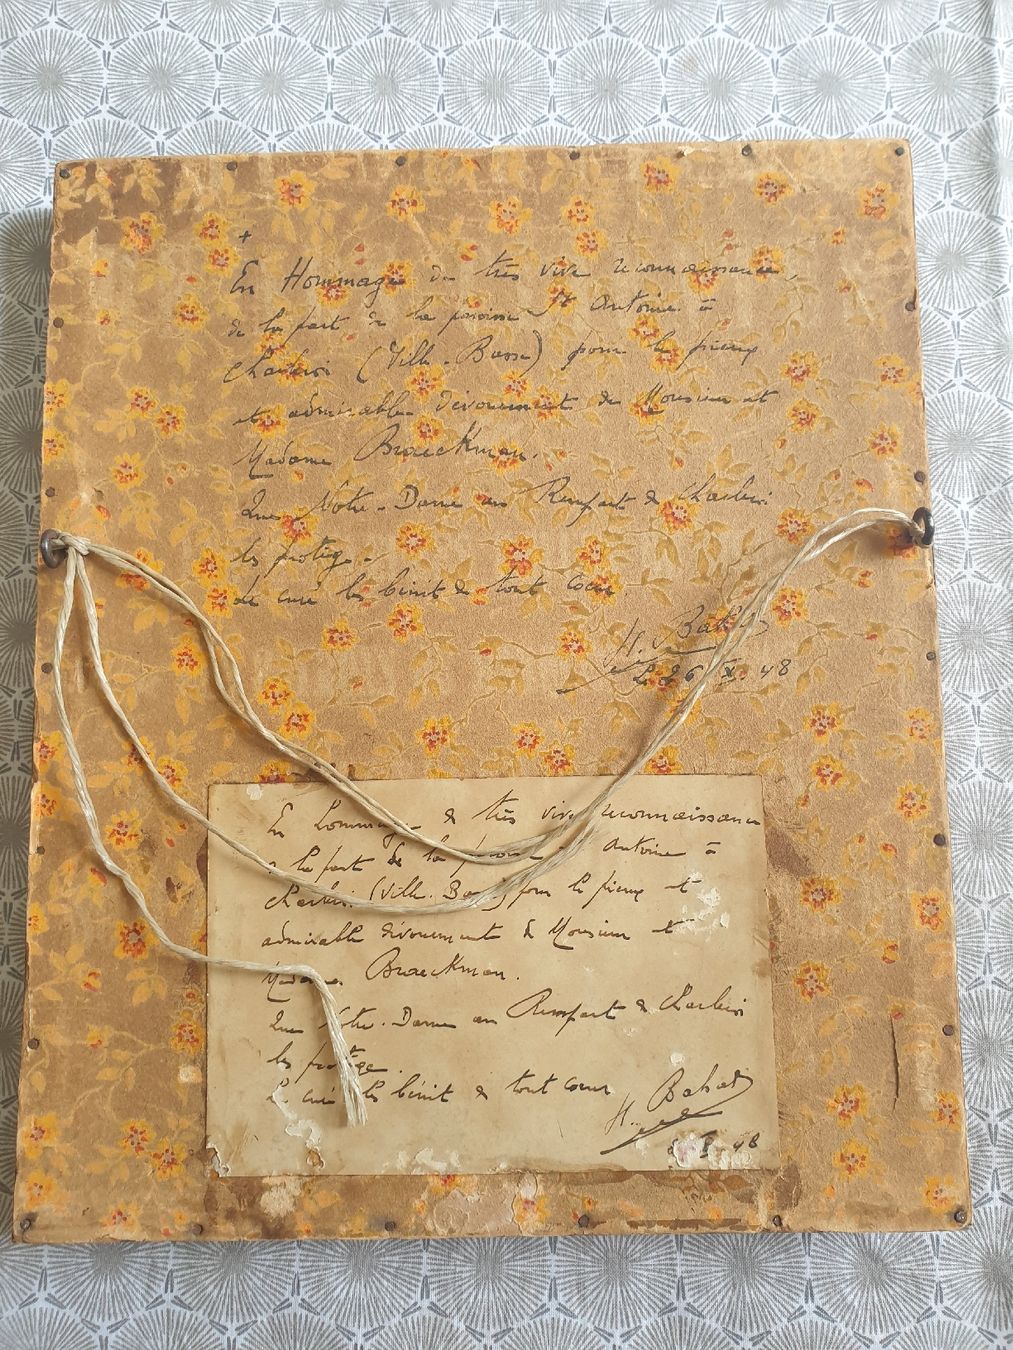 +
En Hommage de très vive reconnaissance,
de la part de la paroisse St Antoine à
Charleroi (Ville-Basse) pour le pieux
et admirable dévouement de Monsieur et
Madame Braeckman.
Que Notre-Dame au Rempart de Charleroi
les protège.
Le curé les bénit de tout coeur
H.
48
En hommage de très vive reconnaissance
la part de la paroisse Antoine à
Charleroi (Ville-Basse) pour le pieux et
admirable dévouement de Monsieur et
Madame Braeckman.
Que Notre-Dame au Rempart de Charleroi
les protège.
Le curé les bénit de tout coeur
H.
48